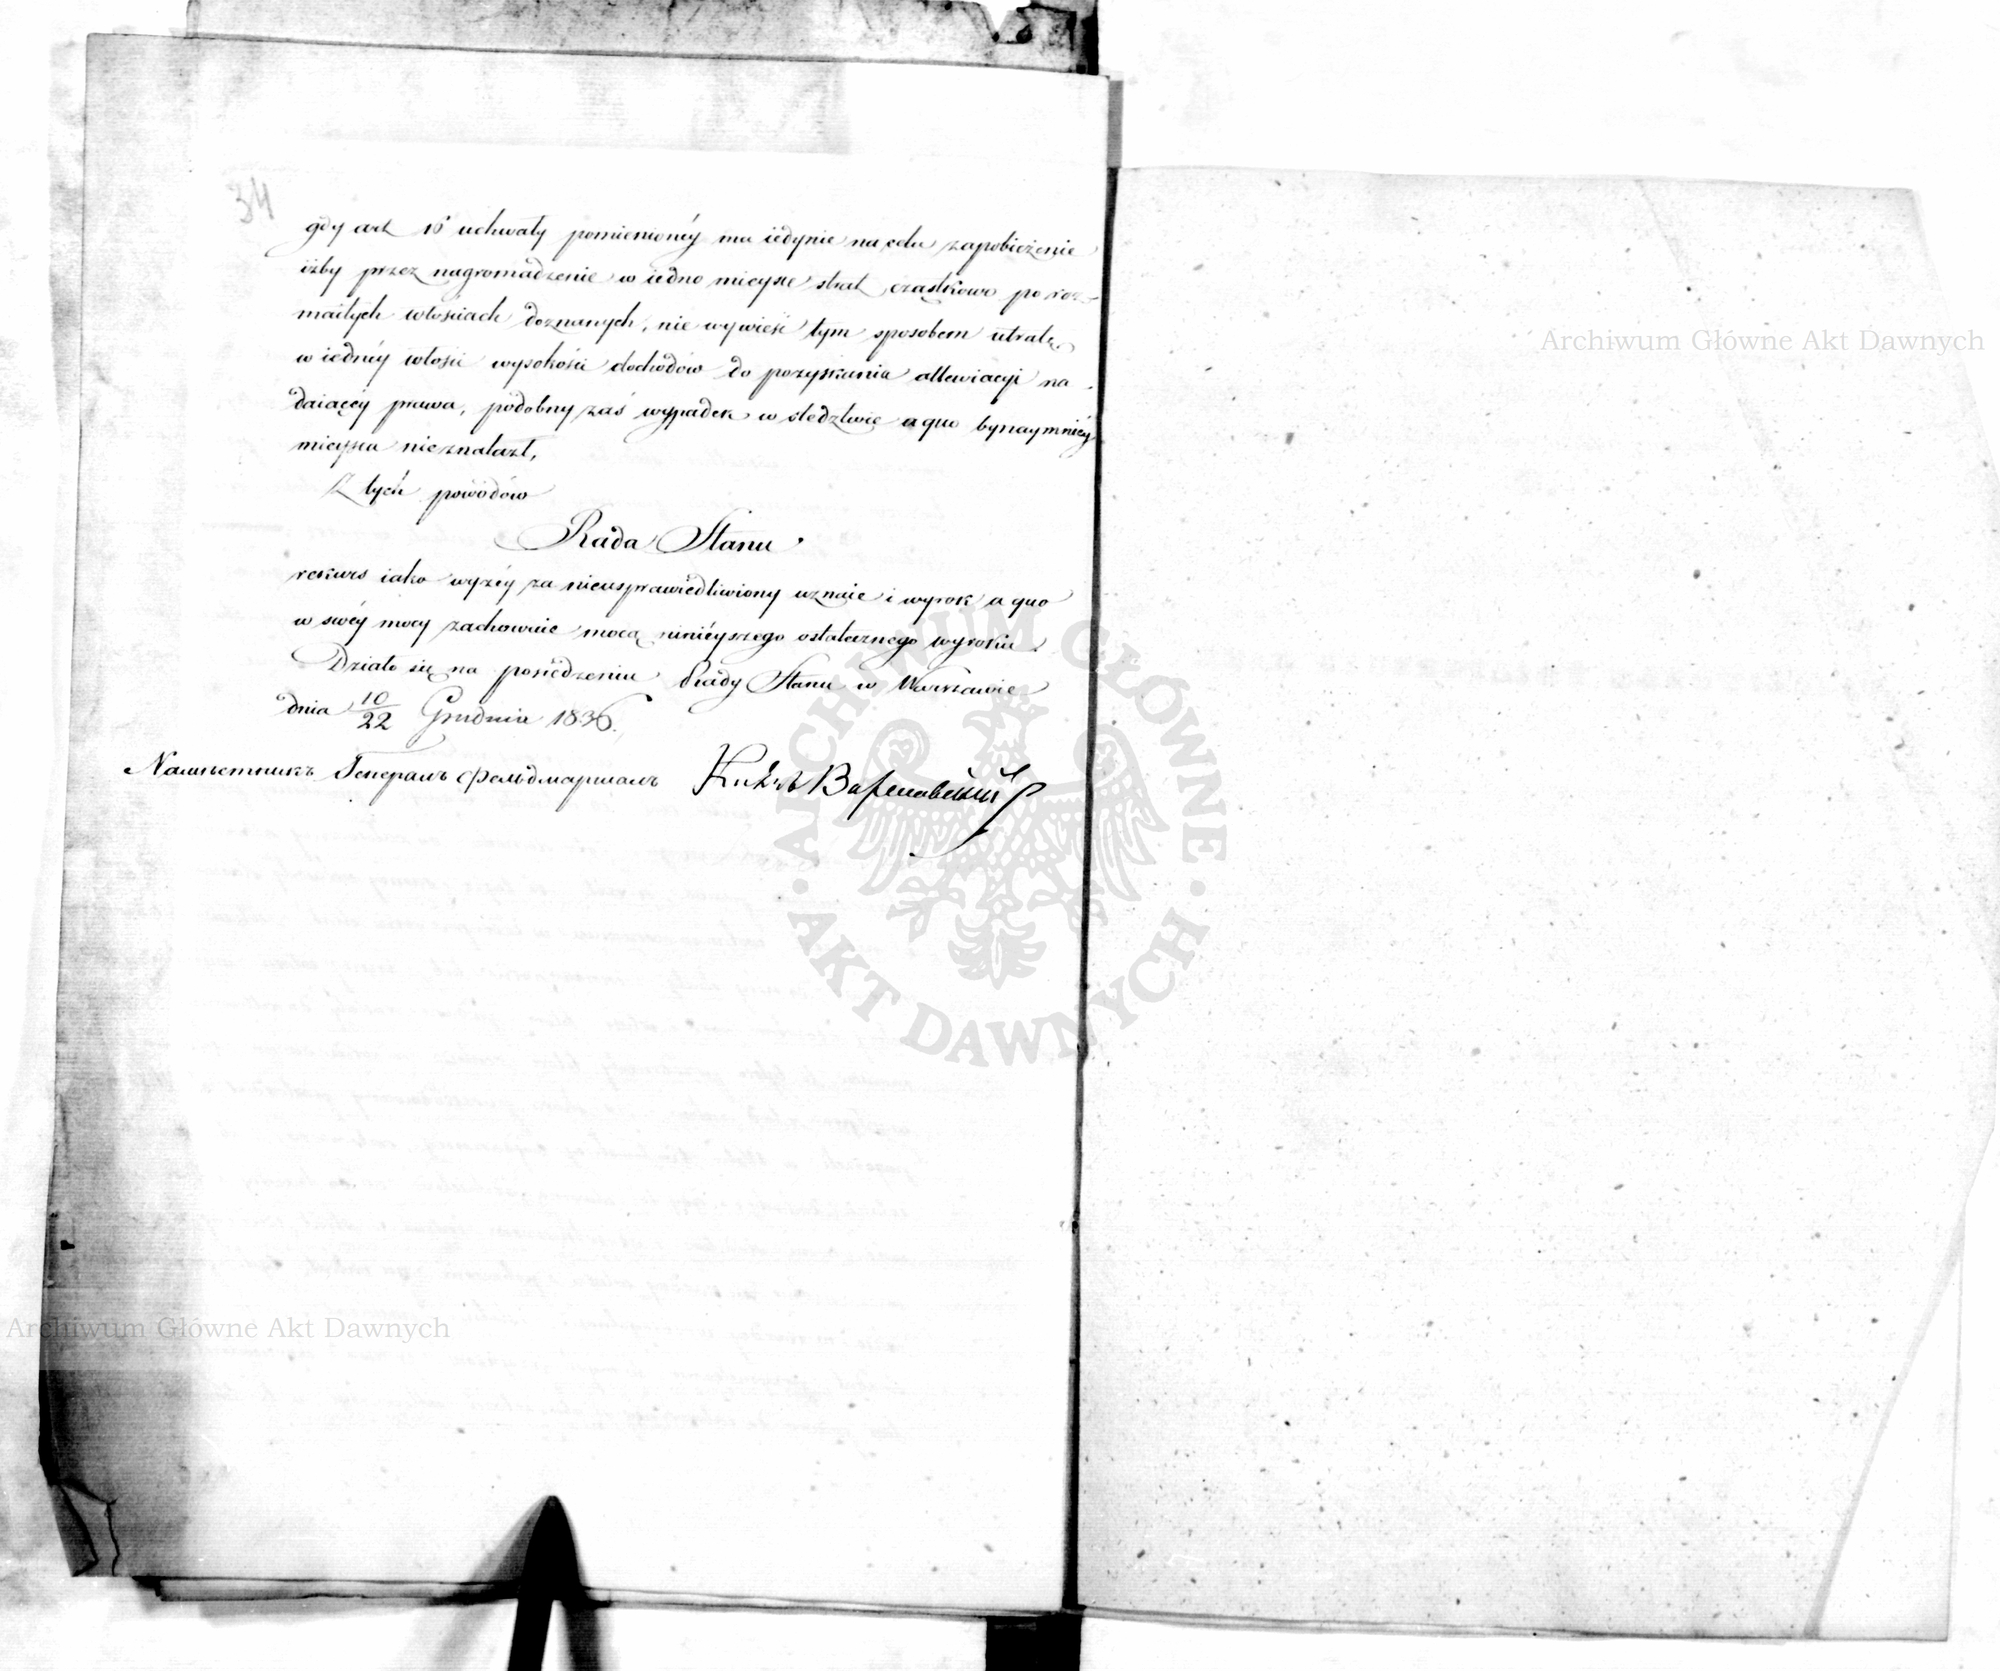 34
gdy art 16 uchwały pomienionéy ma iedynie na celu zapobieżenie
iżby przez nagromadzenie w iedno mieysce strat cząstkowo po roz-
maitych włościach doznanych, nie wywieść tym sposobem utratę
w iednéy włości wysokości dochodów do pozyskania allewiacyi na
daiącéy prawa, podobny zaś wypadek w śledztwie a quo bynaymniéy
mieysca nieznalazł,
Z tych powodów
Rada Stanu
rekurs iako wyżéy za nieusprawiedliwiony uznaie i wyrok a quo
w swéy mocy zachowuie mocą ninieyszego ostatecznego wyroku.
Działo się na posiedzeniu Rady Stanu w Warszawie
dnia 10/22 Grudnia 1836.
Намѣстникъ Генералъ Фельдмаршалъ Князь Варшавскій
Archiwum Główne Akt Dawnych
ARCHIWUM GŁÓWNE · AKT DAWNYCH ·
Archiwum Główne Akt Dawnych